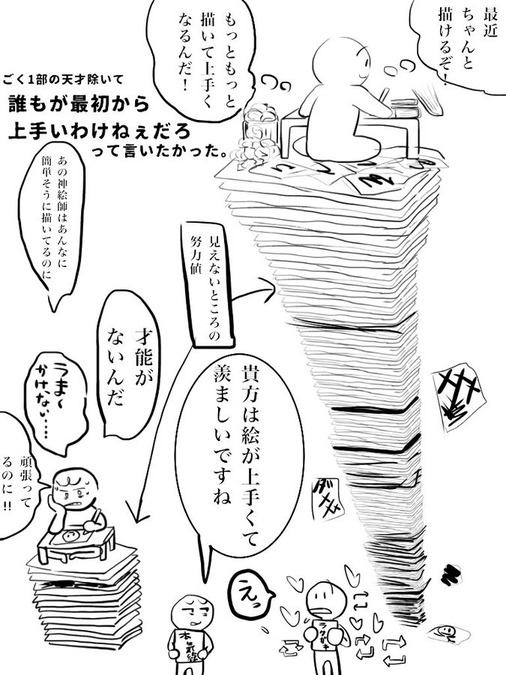 最近
ちゃんと
描けるぞ!
もっともっと
描いて上手く
なるんだ!
ごく1部の天才除いて
誰もが最初から
上手いわけねぇだろ
って言いたかった。
あの神絵師はあんなに
簡単そうに描いてるのに
見えないところの
努力値
才能が
ないんだ
うま〜く
かけない……
頑張って
るのに!!
貴方は絵が上手くて
羨ましいですね
えっ
ラクガキ